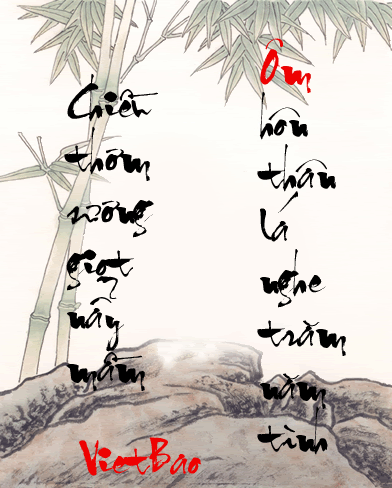 Chiều
thơm
sương
giọt
nẩy
mầm
Ôm
hồn
thân
lá
nghe
trăm
năm
tình
VietBao